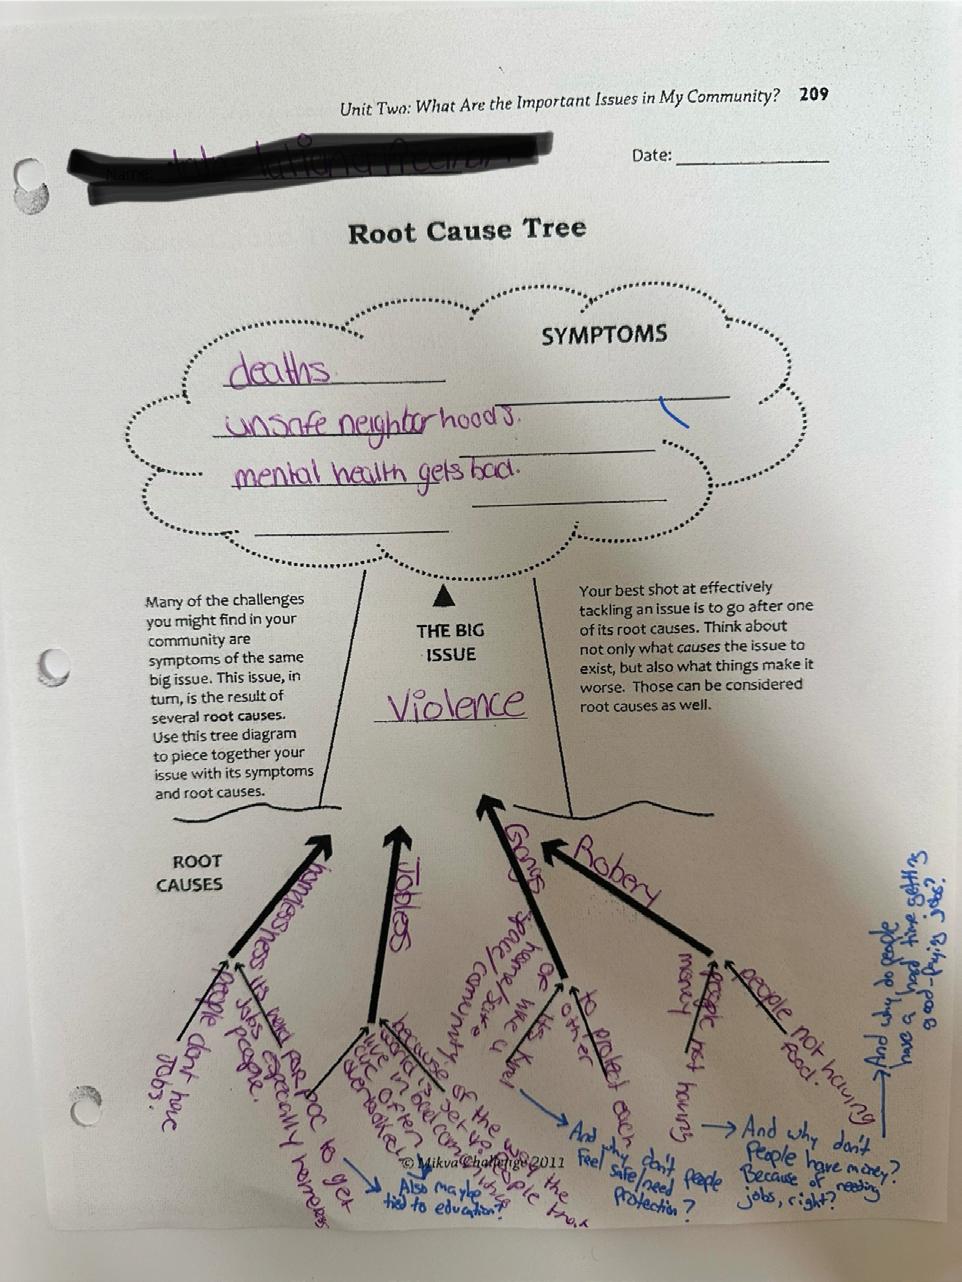 Unit Two: What Are the Important Issues in My Community? 209
Date:
Root Cause Tree
SYMPTOMS
deaths.
unsafe neighborhoods.
mental health gets bad.
Many of the challenges
you might find in your
community are
symptoms of the same
big issue. This issue, in
turn, is the result of
several root causes.
Use this tree diagram
to piece together your
issue with its symptoms
and root causes.
THE BIG
ISSUE
Violence
Your best shot at effectively
tackling an issue is to go after one
of its root causes. Think about
not only what causes the issue to
exist, but also what things make it
worse. Those can be considered
root causes as well.
ROOT
CAUSES
Jobless
Gangs
Robery
people dont have
Jobs.
its hard for poc to get
jobs especially homeless
people.
because of the way the
world is set up. people that
live in bad communities
are often
overlooked
to protect each
other
people not having
money
people not having
food.
Also maybe
tied to education?
And why don't people
feel safe/need
protection?
And why don't
people have money?
Because of needing
jobs, right?
And why do people
have a hard time getting
good-paying jobs?
© Mikva Challenge 2011